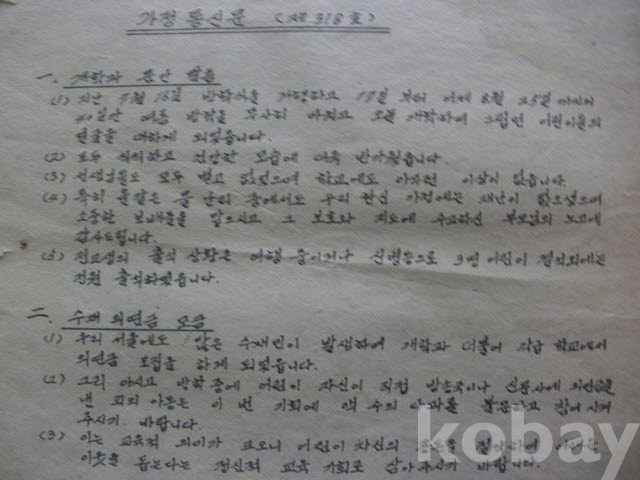 가정 통신문 (제 318호)
一. 개학과 물난 말씀
(1) 지난 7월 16일 방학식을 거행하고 17일 부터 어제 8월 25일 까지의
40일간 여름 방학을 무사히 마치고 오늘 개학하여 그립던 어린이들의
얼굴을 대하게 되었읍니다.
(2) 모두 씩씩하고 건강한 모습에 더욱 반가웠읍니다.
(3) 선생님들도 모두 별고 없었으며 학교에도 아무런 이상이 없읍니다.
(4) 특히 물난리 중에서도 우리 한신 가정에는 재난이 없으셨으며
소중한 보배들을 맡으시고 그 보호와 지도에 수고하신 부모님의 노고에
감사드립니다.
(5) 전교생의 출석 상황은 여행 중이거나 신병등으로 3명 어린이 결석외에는
전원 출석하였읍니다.
二. 수재 의연금 모금
(1) 우리 서울에도 많은 수재민이 발생하여 개학과 더불어 각급 학교에서
의연금 모집을 하게 되었읍니다.
(2) 그리 아시고 방학 중에 어린이 자신이 직접 방송국이나 신문사에 의연금을
낸 외의 아동은 이 번 기회에 액수의 다과를 불문하고 참여 시켜
주시기 바랍니다.
(3) 이는 교육적 의미가 크오니 어린이 자신의 용돈을 절약하여 어려운
이웃을 돕는다는 정신적 교육 기회로 삼아 주시기 바랍니다.
kobay